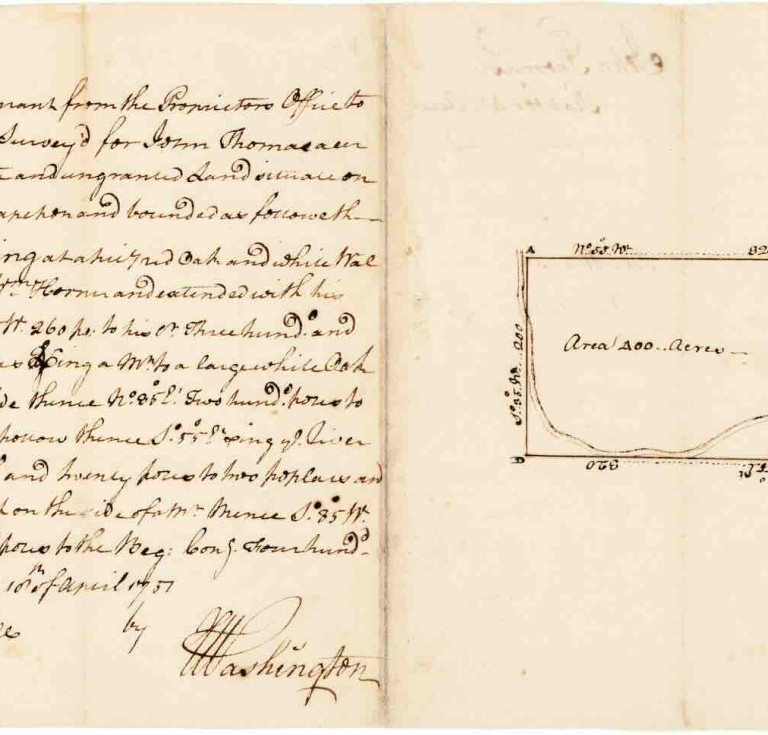 from the Proprietors Office to
Survey'd for John Thomas a cer
and ungranted Land situate on
and bounded as followeth
ing at a hic'y red Oak and white Wal
Wm. Horner and extended with his
Wt. 260 po. to his Cr. Three hundd. and
Xing a Mn. to a large white Oak
thence No. 35 Et. Two hundd. poles to
hollow thence So. 55 Et. Xing ye. River
and twenty poles to two poplars and
on the side of a Mn. thence So. 35 Wt.
poles to the Beg: Cong. Four hundd.
10th. of April 1751
by
GWashington
A
No. 55. Wt.
So. 35. Wt. 200
Area 400..Acres
D
320